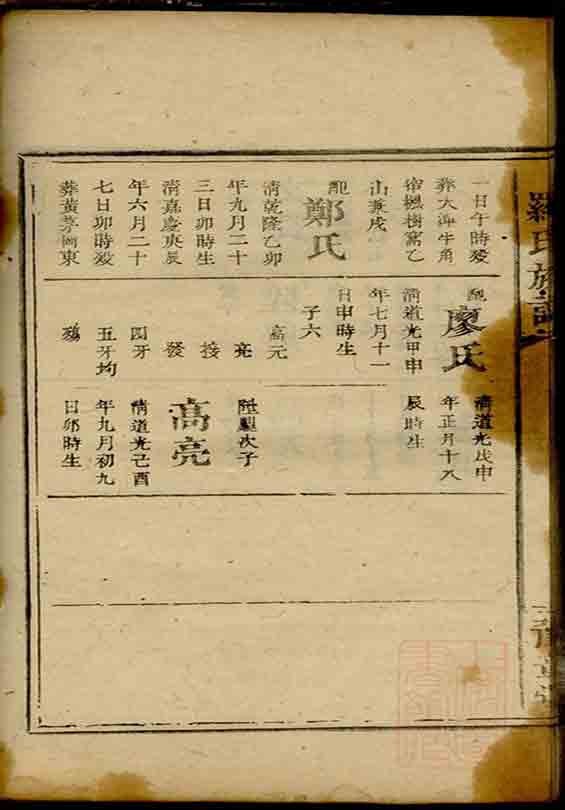 羅氏族譜
一日午時歿
葬大海牛角
窩楓樹窩乙
山兼戌
配
鄭氏
清乾隆乙卯
年九月二十
三日卯時生
清嘉慶庚辰
年六月二十
七日卯時歿
葬黃茅崗東
配
廖氏
清道光甲申
年七月十一
日申時生
子六
高元
亮
接
發
四牙
五牙均
殤
清道光戊申
年正月十八
辰時生
次子
高亮
清道光己酉
年九月初九
日卯時生